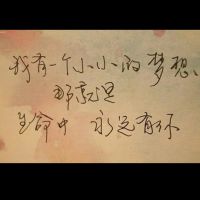 我有一个小小的梦想、
那就是
生命中 永远有你